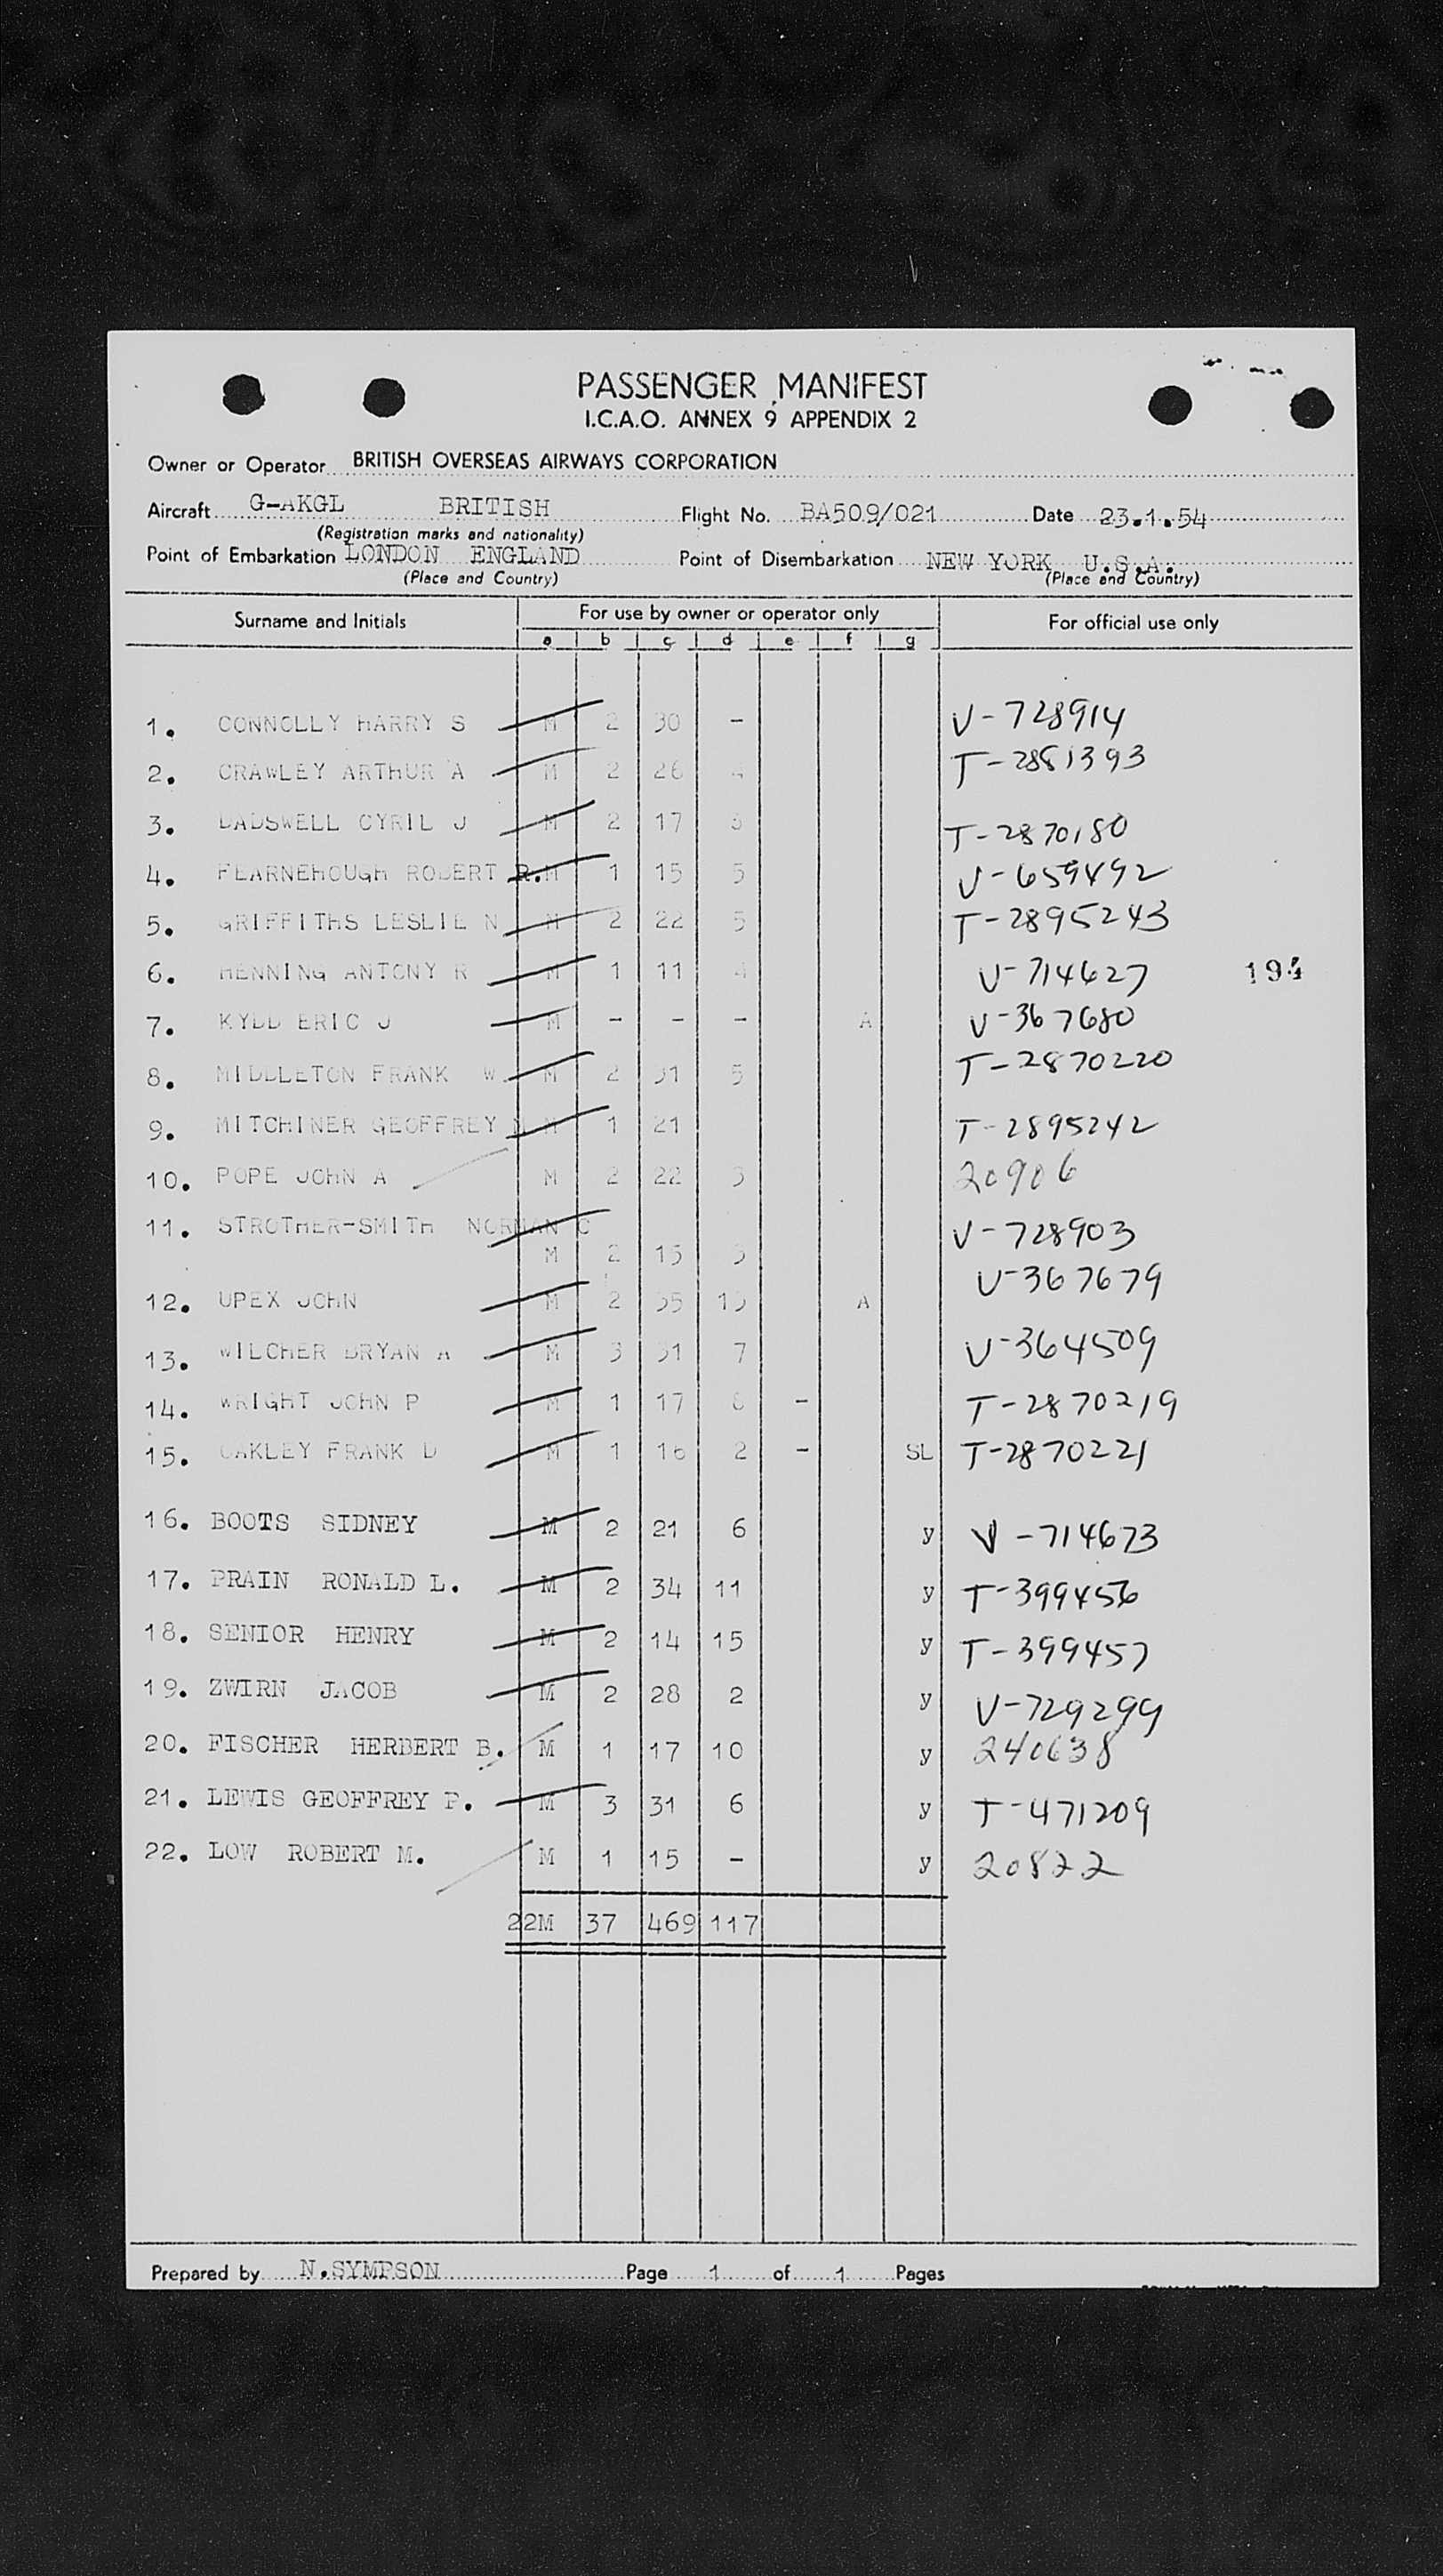 PASSENGER MANIFEST
I.C.A.O. ANNEX 9 APPENDIX 2
Owner or Operator BRITISH OVERSEAS AIRWAYS CORPORATION
Aircraft G-AKGL BRITISH Flight No. BA509/021 Date 23.1.54
(Registration marks and nationality)
Point of Embarkation LONDON ENGLAND Point of Disembarkation NEW YORK U.S.A.
(Place and Country) (Place and Country)
Surname and Initials For use by owner or operator only For official use only
a b c d e f g
1. CONNOLLY HARRY S M 2 30 - V-728914
2. CRAWLEY ARTHUR A M 2 26 4 T-2881393
3. DADSWELL CYRIL J M 2 17 3 T-2870180
4. FEARNEHOUGH ROBERT R. M 1 15 5 V-659492
5. GRIFFITHS LESLIE N M 2 22 5 T-2895243
6. HENNING ANTONY R M 1 11 4 V-714627 194
7. KYDD ERIC J M - - - A V-367680
8. MIDDLETON FRANK W M 2 31 5 T-2870220
9. MITCHINER GEOFFREY M 1 21 T-2895242
10. POPE JOHN A M 2 22 3 20906
11. STROTHER-SMITH NORMAN C V-728903
M 2 15 3
12. UPEX JOHN M 2 35 13 A V-367679
13. WILCHER BRYAN A M 3 31 7 V-364509
14. WRIGHT JOHN P M 1 17 8 - T-2870219
15. OAKLEY FRANK D M 1 16 2 - SL T-2870221
16. BOOTS SIDNEY M 2 21 6 y V-714673
17. PRAIN RONALD L. M 2 34 11 y T-399456
18. SENIOR HENRY M 2 14 15 y T-399457
19. ZWIRN JACOB M 2 28 2 y V-729299
20. FISCHER HERBERT B. M 1 17 10 y 240638
21. LEWIS GEOFFREY P. M 3 31 6 y T-471209
22. LOW ROBERT M. M 1 15 - y 20822
22M 37 469 117
Prepared by N.SYMPSON Page 1 of 1 Pages